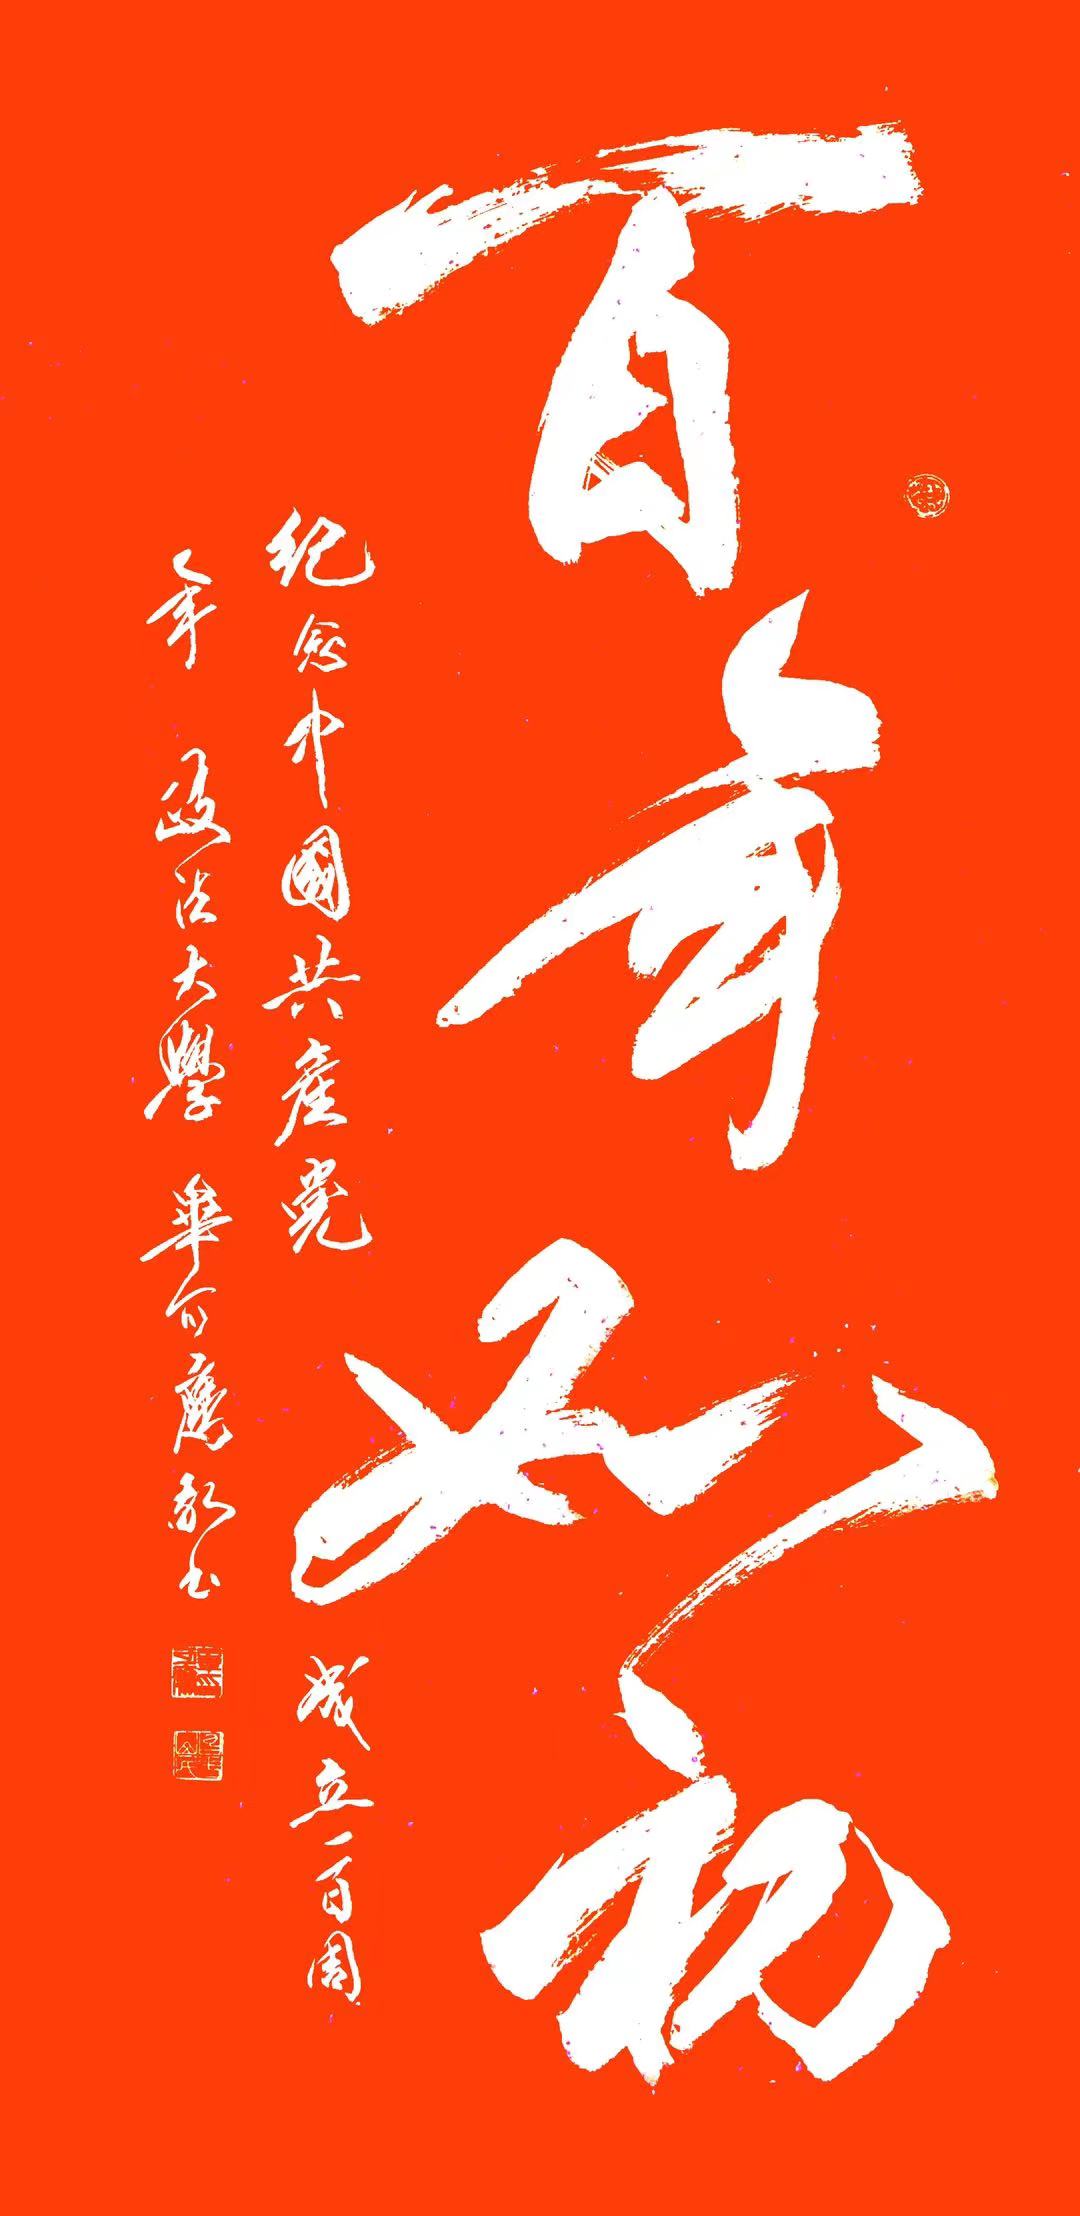 百年如初
纪念中國共產党成立一百周
年 政法大學 畢可 書